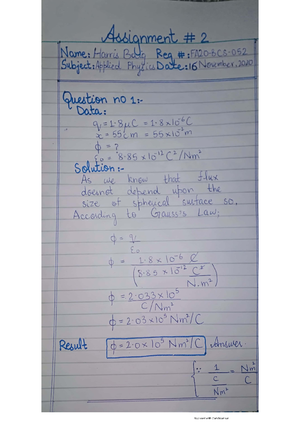 Assignment # 2
Name: Harris Baig Reg #: FA20-BCS-052
Subject: Applied Physics Date: 16 November, 2020
Question no 1:-
Data:
q = 1.8μC = 1.8×10⁻⁶C
x = 55cm = 55×10⁻²m
ϕ = ?
ε₀ = 8.85×10⁻¹² C²/Nm²
Solution:-
As we know that flux
doesnot depend upon the
size of spherical surface so,
According to Gauss's Law;
ϕ = q/ε₀
ϕ = 1.8×10⁻⁶ C / (8.85×10⁻¹² C²/N.m²)
ϕ = 2.033×10⁵ / C/Nm²
ϕ = 2.03×10⁵ Nm²/C
Result ϕ = 2.0×10⁵ Nm²/C Answer
{∵ 1/(C/Nm²) = Nm²/C